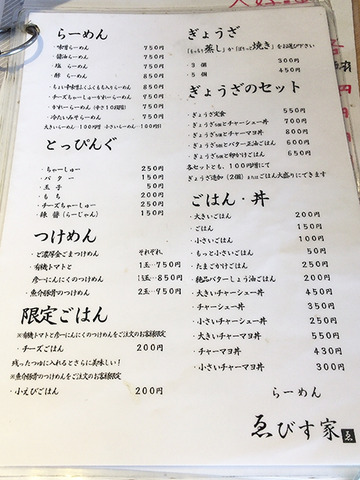 らーめん
・味噌らーめん 750円
・醤油らーめん 750円
・塩らーめん 750円
・酢らーめん 850円
・チーズちゃーしゅーかれーらーめん
・かれーらーめん
・冷たいみそらーめん
大きいらーめん・100円増 小さいらーめん・100円引
とっぴんぐ
・ちゃーしゅー 250円
・バター 150円
・玉子 50円
・もち 250円
・チーズちゃーしゅー 250円
・辣醤（らーじゃん） 150円
つけめん
・ど濃厚ごまつけめん それぞれ、
・有機トマトと 1玉…750円
彦一にんにくのつけめん 1.5玉…850円
・魚介豚骨のつけめん 2玉…950円
限定ごはん
※有機トマトと彦一にんにくのつけめんをご注文のお客様限定
・チーズごはん 200円
残ったつゆに入れるとさらに美味しい！
※魚介豚骨のつけめんをご注文のお客様限定
・小えびごはん 200円
ぎょうざ
（もっちり蒸しか ぱりっと焼きをお選び下さい
・3個 300円
・5個 450円
ぎょうざのセット
・ぎょうざ定食 550円
・ぎょうざ5個とチャーシュー丼 700円
・ぎょうざ5個とチャーマヨ丼 800円
・ぎょうざ5個とバター正油ごはん 600円
・ぎょうざ5個と卵かけごはん 650円
各セットとも、100円増にて
ぎょうざ追加（2個）またはごはん大盛りにできます
ごはん・丼
・大きいごはん 200円
・ごはん 150円
・小さいごはん 100円
・もっと小さいごはん 50円
・たまごかけごはん 250円
・絶品バターしょう油ごはん 200円
・大きいチャーシュー丼 450円
・チャーシュー丼 350円
・小さいチャーシュー丼 300円
・大きいチャーマヨ丼 550円
・チャーマヨ丼 430円
・小さいチャーマヨ丼 300円
らーめん
ゑびす家
ゑ